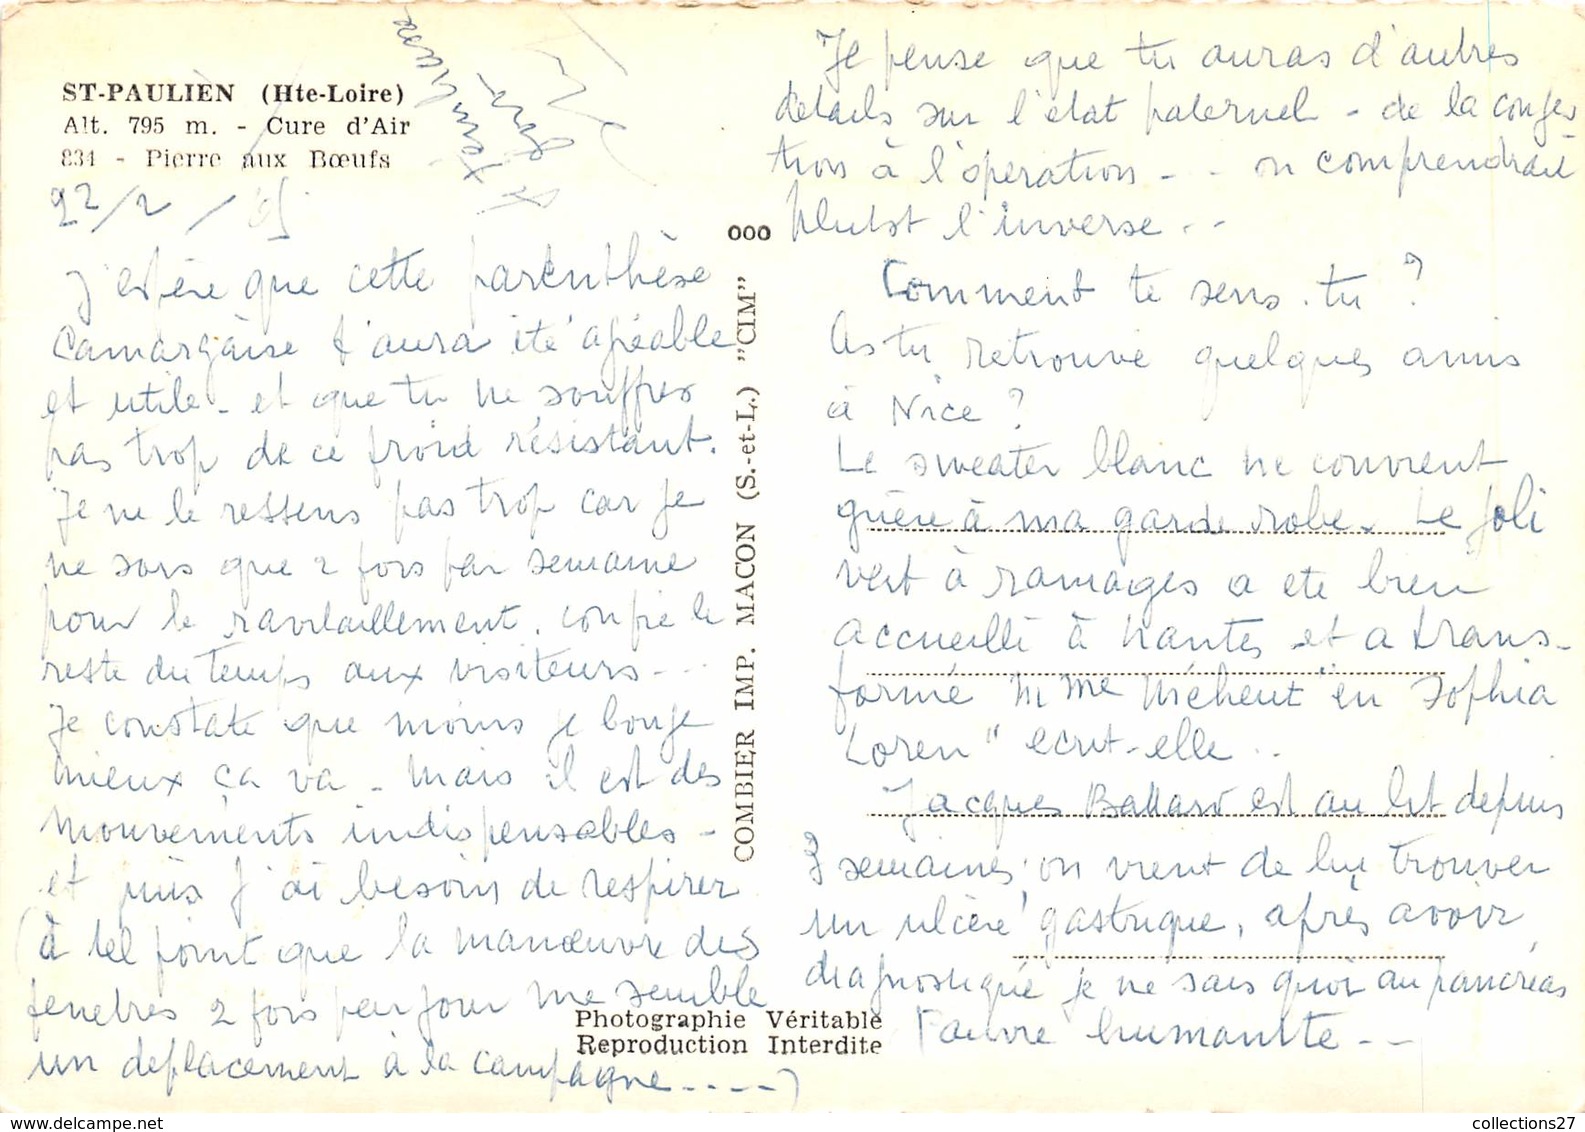 ST-PAULIEN (Hte-Loire)
Alt. 795 m. - Cure d'Air
834 - Pierre aux Bœufs
22/2/65
J'espère que cette parenthèse
camargaise t'aura été agréable
et utile - et que tu ne souffres
pas trop de ce froid résistant.
Je ne le ressens pas trop car je
ne sors que 2 fois par semaine
pour le ravitaillement. confie le
reste du temps aux visiteurs...
Je constate que moins je bouge
mieux ça va - mais il est des
mouvements indispensables -
et puis j'ai besoin de respirer
(à tel point que la manœuvre des
fenetres 2 fois par jour me semble
un deplacement à la campagne....)
ooo
COMBIER IMP. MACON (S.-et-L.) "CIM"
Photographie Véritable
Reproduction Interdite
Je pense que tu auras d'autres
details sur l'etat paternel - de la conges
tion à l'operation - .. on comprendrait
plutot l'inverse ..
Comment te sens-tu ?
As tu retrouvé quelques amis
à Nice ?
Le sweater blanc ne convient
guère à ma garde robe. Le joli
vert à ramages a ete bien
accueilli à Nantes et a trans-
formé Mme Méchent "en Sophia
Loren" ecrit-elle ..
Jacques Ballard est au lit depuis
3 semaines, on vient de lui trouver
un ulcère gastrique, après avoir
diagnostiqué je ne sais quoi au pancréas
Pauvre humanité - -
collections27